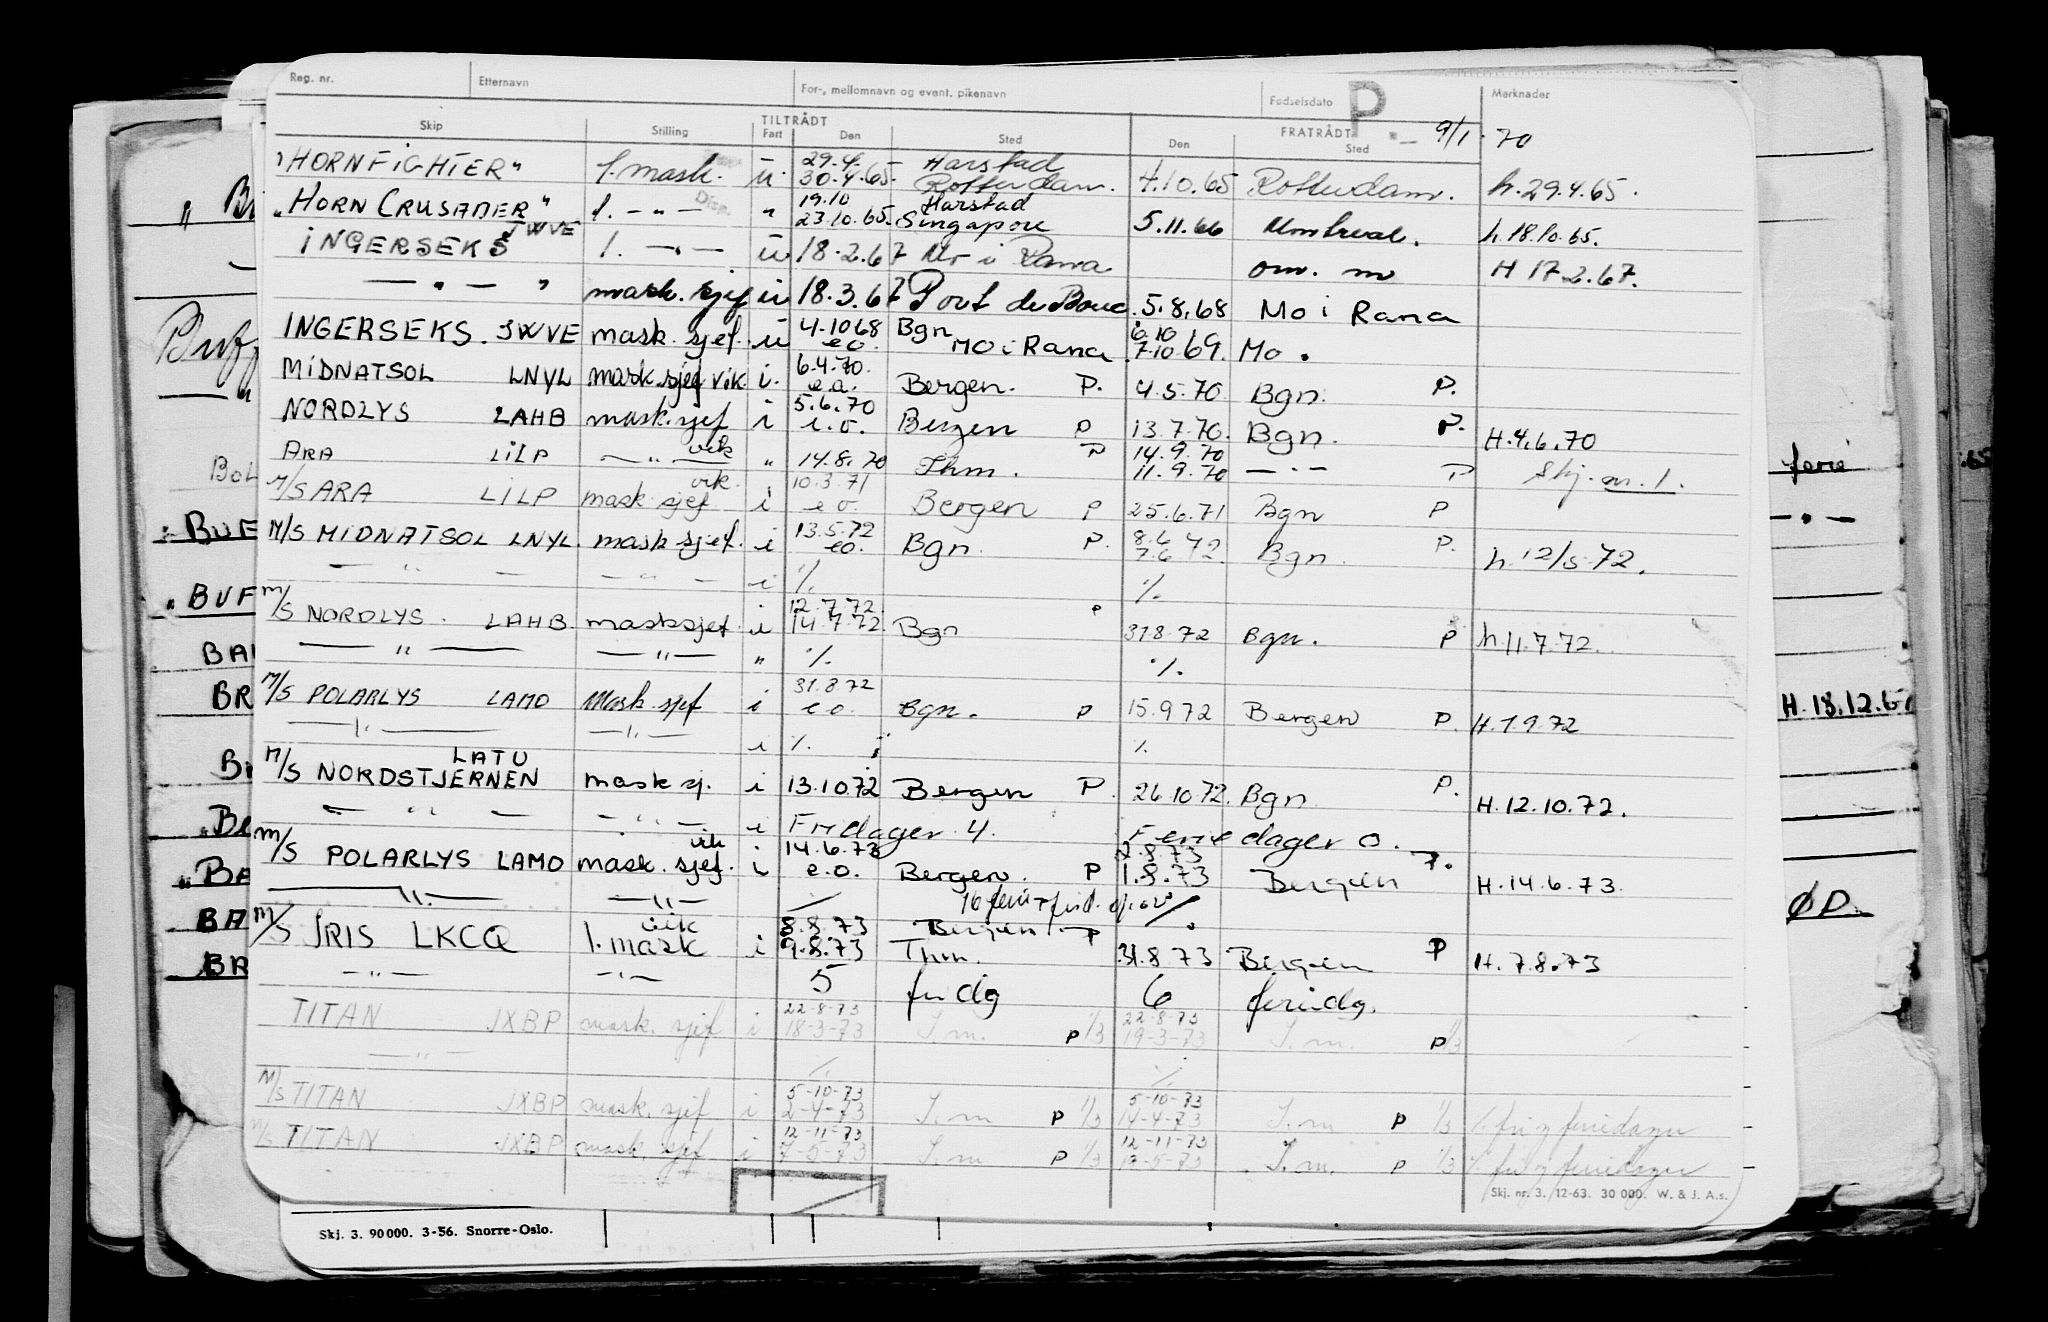 Reg. nr. Etternavn For-, mellomnavn og event. pikenavn Fødselsdato P Merknader
Skip Stilling TILTRÅDT Fart Den Sted Den FRATRÅDT Sted 9/1 70
"HORNFIGHTER" 1. mask. u 29.4. 30.4.65. Harstad Rotterdam. 4.10.65 Rotterdam. h. 29.4.65.
"HORN CRUSADER" 1. — " — Disp. " 19.10 23.10.65. Harstad Singapore 5.11.66 Montreal. h. 18.10.65.
INGERSEKS JWVE 1. — " — u 18.2.67 Mo i Rana om. m H 17.2.67.
— " — " mask. sjef u 18.3.67 Port de Bouc. 5.8.68 Mo i Rana
INGERSEKS. JWVE mask. sjef. u 4.10 68 e.o. Bgn Mo i Rana 6.10 7.10 69. Mo.
MIDNATSOL LNYL mask. sjef vik. i. 6.4.70. e.o. Bergen. P. 4.5.70 Bgn. P.
NORDLYS LAHB mask. sjef i 5.6.70 e.o. Bergen P 13.7.70. Bgn. P. H. 4.6.70
ARA LILP — " — vik " 14.8.70 Thm. P 14.9.70 11.9.70 — " — P Skj. nr. 1.
M/S ARA LILP mask. sjef vik. i 10.3.71 e.o. Bergen P 25.6.71 Bgn P
M/S MIDNATSOL LNYL. mask sjef. i 13.5.72 eo. Bgn. P. 8.6 7.6 72. Bgn. P. h. 12/5-72.
— " — — " — i %. %.
M/S NORDLYS. LAHB masksjef. i 12.7.72. 14.7.72. Bgn P 31.8.72 Bgn. P h. 11.7.72.
— " — — " — " %. %.
M/S POLARLYS LAMO Mask. sjef i 31.8.72 e.o. Bgn. P 15.9 72 Bergen P. H. 1.9.72
— " — — " — i %. %.
M/S NORDSTJERNEN LATU mask sj. i 13.10 72 Bergen P. 26.10.72. Bgn P. H. 12.10.72.
— " — — " — i Fridager 4. Feriedager 0.
M/S POLARLYS LAMO mask. sjef. vik i 14.6.73 e.o. Bergen. P 2.8.73 1.8.73 Bergen P. H. 14.6.73.
— " — — " — 16 ferie + frid.
M/S IRIS LKCQ 1. mask vik i 8.8.73 9.8.73 Bergen P Thm. 31.8 73 Bergen P H. 7.8.73
— " — — " — 5 fridg 6 feridg.
TITAN JXBP mask. sjef i 22-8-73 18-3-73 I.m. P 1/3 22-8-73 19-3-73 I.m. P 1/3
— " — %. %.
M/S TITAN JXBP mask. sjef i 5-10-73 2-4-73 I.m P 1/3 5-10-73 14-4-73 I.m P 1/3 % fri og feriedager
M/S TITAN JXBP mask. sjef i 12-11-73 7-5-73 I.m P 1/3 12-11-73 I.m. P 1/3 % fri og feriedager
Skj. nr. 3. 12-63. 30 000. W. & J. A.s.
Skj. 3. 90 000. 3-56. Snorre-Oslo.
BUF
BUF
BA
BR
BA
BR
ferie
— " —
H. 18.12.6
ØD.